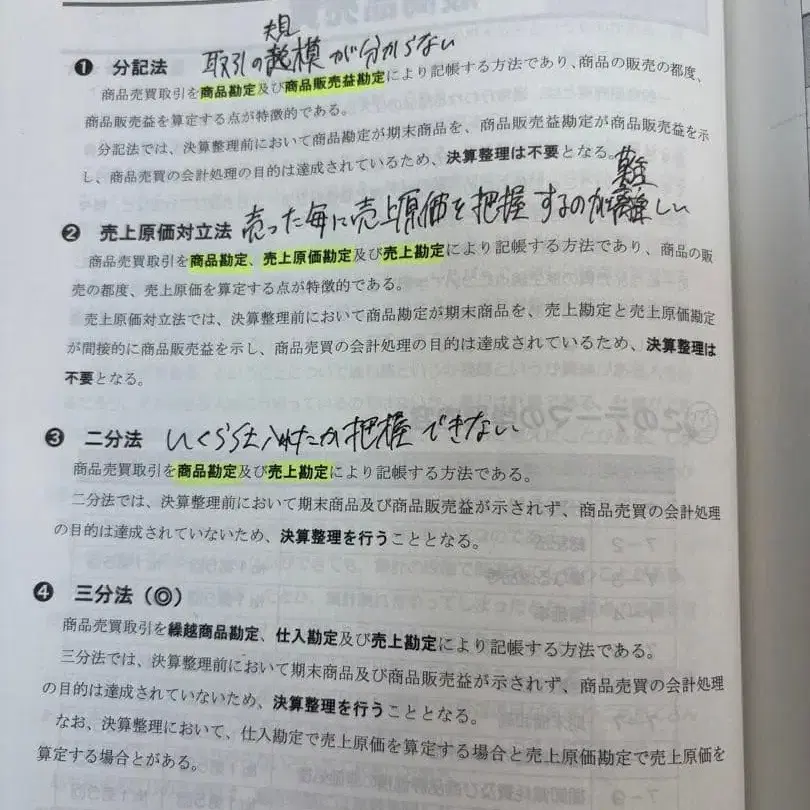 取引の規模が分からない
❶ 分記法
商品売買取引を商品勘定及び商品販売益勘定により記帳する方法であり、商品の販売の都度、
商品販売益を算定する点が特徴的である。
分記法では、決算整理前において商品勘定が期末商品を、商品販売益勘定が商品販売益を示
し、商品売買の会計処理の目的は達成されているため、決算整理は不要となる。
❷ 売上原価対立法 売った毎に売上原価を把握するのが難しい
商品売買取引を商品勘定、売上原価勘定及び売上勘定により記帳する方法であり、商品の販
売の都度、売上原価を算定する点が特徴的である。
売上原価対立法では、決算整理前において商品勘定が期末商品を、売上勘定と売上原価勘定
が間接的に商品販売益を示し、商品売買の会計処理の目的は達成されているため、決算整理は
不要となる。
❸ 二分法 いくら仕入れたか把握できない
商品売買取引を商品勘定及び売上勘定により記帳する方法である。
二分法では、決算整理前において期末商品及び商品販売益が示されず、商品売買の会計処理
の目的は達成されていないため、決算整理を行うこととなる。
❹ 三分法(◎)
商品売買取引を繰越商品勘定、仕入勘定及び売上勘定により記帳する方法である。
三分法では、決算整理前において期末商品及び商品販売益が示されず、商品売買の会計処理
の目的は達成されていないため、決算整理を行うこととなる。
なお、決算整理において、仕入勘定で売上原価を算定する場合と売上原価勘定で売上原価を
算定する場合とがある。